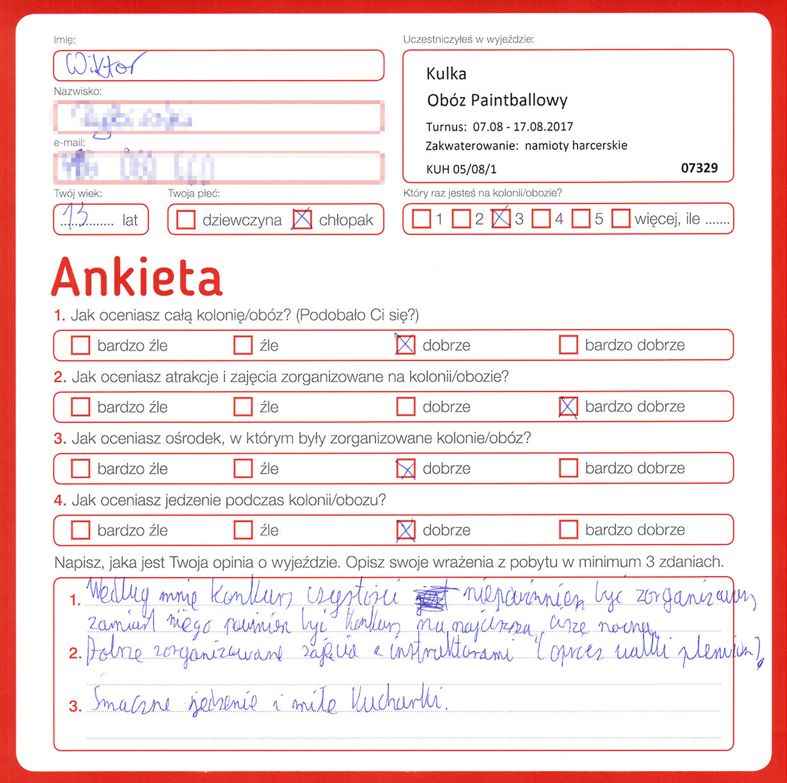 Imię:
Wiktor
Nazwisko:
e-mail:
Twój wiek:
13 lat
Twoja płeć:
dziewczyna chłopak
Uczestniczyłeś w wyjeździe:
Kulka
Obóz Paintballowy
Turnus: 07.08 - 17.08.2017
Zakwaterowanie: namioty harcerskie
KUH 05/08/1 07329
Który raz jesteś na kolonii/obozie?
1 2 3 4 5 więcej, ile .......
Ankieta
1. Jak oceniasz całą kolonię/obóz? (Podobało Ci się?)
bardzo źle źle dobrze bardzo dobrze
2. Jak oceniasz atrakcje i zajęcia zorganizowane na kolonii/obozie?
bardzo źle źle dobrze bardzo dobrze
3. Jak oceniasz ośrodek, w którym były zorganizowane kolonie/obóz?
bardzo źle źle dobrze bardzo dobrze
4. Jak oceniasz jedzenie podczas kolonii/obozu?
bardzo źle źle dobrze bardzo dobrze
Napisz, jaka jest Twoja opinia o wyjeździe. Opisz swoje wrażenia z pobytu w minimum 3 zdaniach.
1. Według mnie konkurs czystości niepowinnien być zorganizowany
zamiast niego powinien być konkurs na najcisza cisze nocną.
2. Dobrze zorganizowane zajęcia z instruktorami (oprócz walki plemion).
3. Smaczne jedzenie i miłe Kucharki.